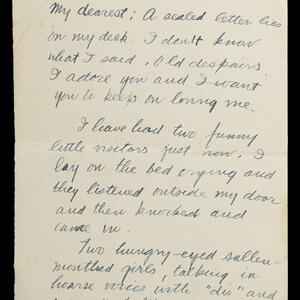 My dearest; A sealed letter lies
on my desk. I don't know
what I said. Old despairs
I adore you and I want
you to keep on loving me.
I have had two funny
little visitors just now. I
lay on the bed crying and
they listened outside my door
and then knocked and
came in.
Two hungry-eyed sullen-
mouthed girls, talking in
hoarse voices with "dis" and